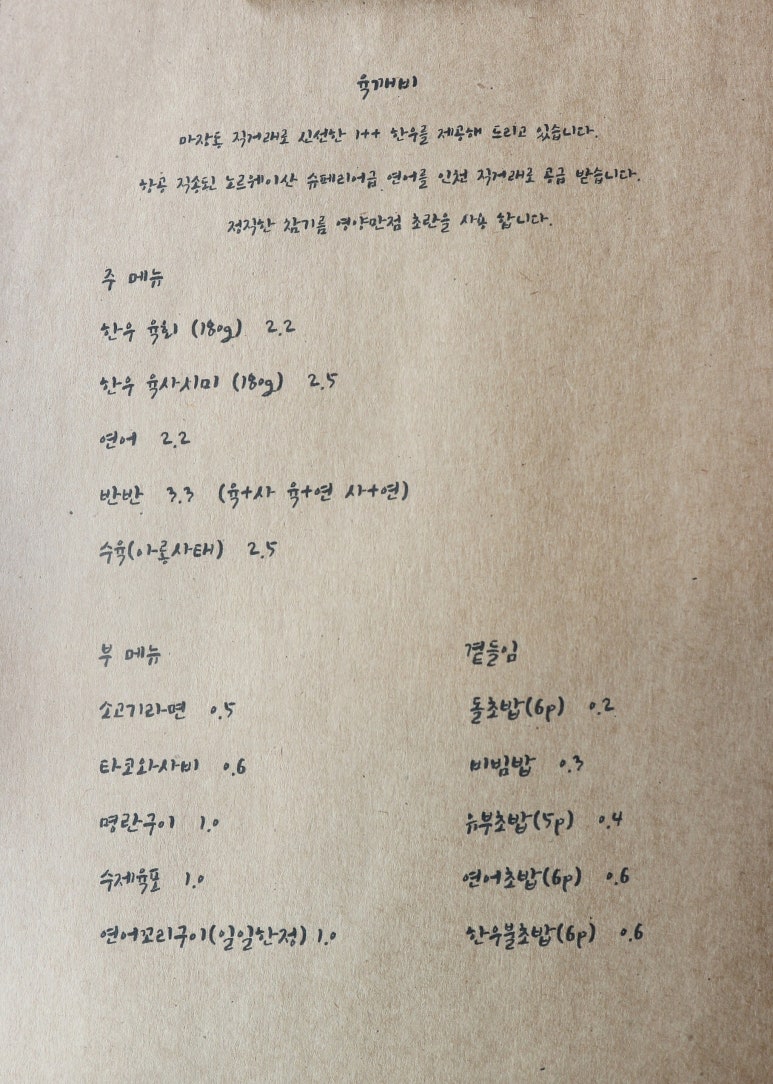 육깨비
마장동 직거래로 신선한 1++ 한우를 제공해 드리고 있습니다.
항공 직송된 노르웨이산 슈페리어급 연어를 인천 직거래로 공급 받습니다.
정직한 참기름 영양만점 초란을 사용 합니다.
주 메뉴
한우 육회 (180g) 2.2
한우 육사시미 (180g) 2.5
연어 2.2
반반 3.3 (육+사 육+연 사+연)
수육(아롱사태) 2.5
부 메뉴
소고기라면 0.5
타코와사비 0.6
명란구이 1.0
수제육포 1.0
연어꼬리구이(일일한정) 1.0
곁들임
돌초밥(6p) 0.2
비빔밥 0.3
유부초밥(5p) 0.4
연어초밥(6p) 0.6
한우불초밥(6p) 0.6